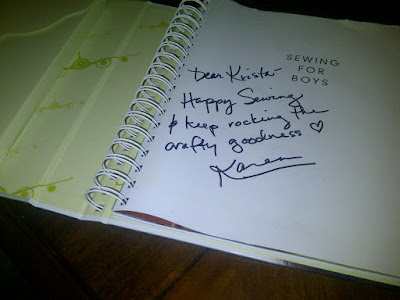 SEWING
FOR
BOYS
Dear Krista-
Happy Sewing
& keep rocking the
crafty goodness ♡
Karen